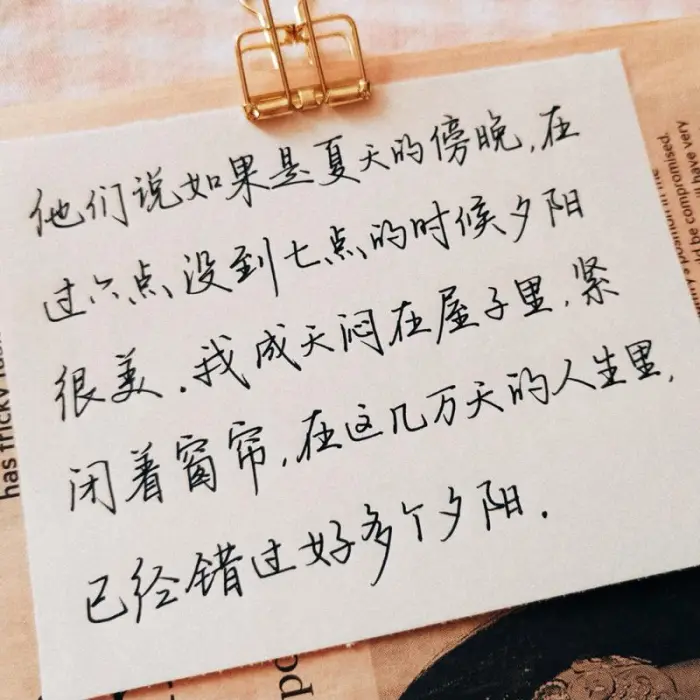 他们说如果是夏天的傍晚,在
过六点没到七点的时候夕阳
很美.我成天闷在屋子里.紧
闭着窗帘,在这几万天的人生里,
已经错过好多个夕阳.
has tricky
compromised.